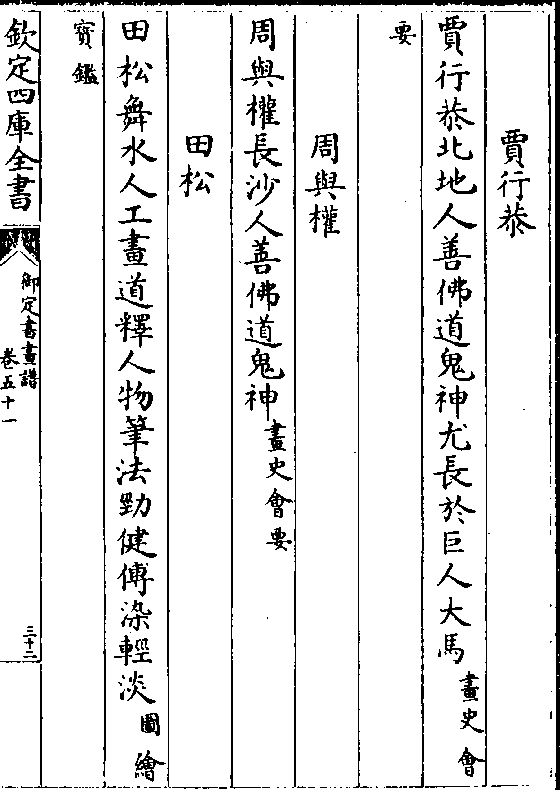 賈行恭
賈行恭北地人善佛道鬼神尤長於巨人大馬畫史會
要
周與權
周與權長沙人善佛道鬼神畫史會要
田松
田松舞水人工畫道釋人物筆法勁健傅染輕淡圖繪
寶鑑
欽定四庫全書
御定書畫譜
卷五十一
三十二